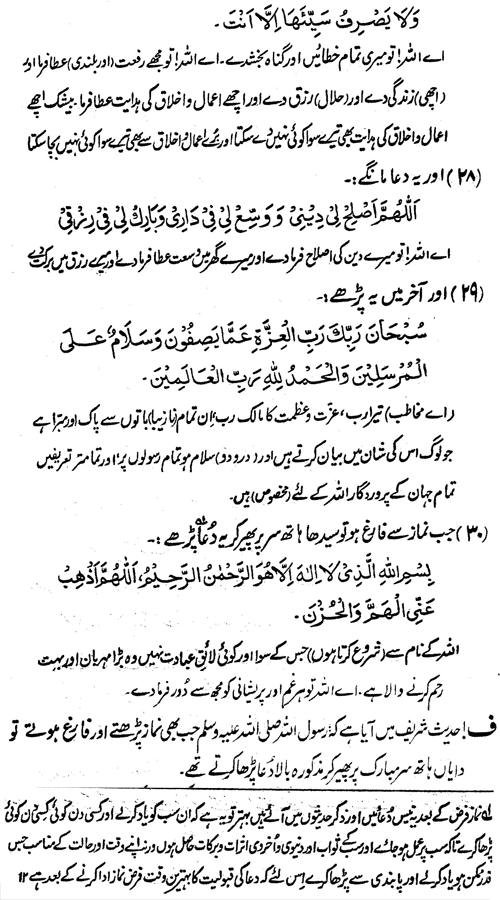 وَلَا يَصْرِفُ سَيِّئَهَا اِلَّا اَنْتَ ۔
اے اللہ! تو میری تمام خطائیں اور گناہ بخشدے۔ اے اللہ! تو مجھے رفعت (اور بلندی) عطا فرما اور
(اچھی) زندگی دے اور (حلال) رزق دے اور اچھے اعمال و اخلاق کی ہدایت عطا فرما۔ بیشک اچھے
اعمال و اخلاق کی ہدایت بھی تیرے سوا کوئی نہیں دے سکتا اور بُرے اعمال و اخلاق سے بھی تیرے سوا کوئی نہیں بچا سکتا
(۲۸) اور یہ دعا مانگے :۔
اَللّٰهُمَّ اَصْلِحْ لِىْ دِيْنِىْ وَ وَسِّعْ لِىْ فِىْ دَارِىْ وَبَارِكْ لِىْ فِىْ رِزْقِىْ
اے اللہ! تو میرے دین کی اصلاح فرما دے اور میرے گھر میں وسعت عطا فرما دے اور میرے رزق میں برکت دے
(۲۹) اور آخر میں یہ پڑھے :۔
سُبْحَانَ رَبِّكَ رَبِّ الْعِزَّةِ عَمَّا يَصِفُوْنَ وَسَلَامٌ عَلَى
الْمُرْسَلِيْنَ وَالْحَمْدُ لِلّٰهِ رَبِّ الْعَالَمِيْنَ ۔
(اے مخاطب) تیرا رب، عزّت و عظمت کا مالک رب، اِن تمام (نازیبا) باتوں سے پاک اور مبرّا ہے
جو لوگ اس کی شان میں بیان کرتے ہیں اور (درود و) سلام ہو تمام رسولوں پر، اور تمامتر تعریفیں
تمام جہان کے پروردگار اللہ کے لئے (مخصوص) ہیں۔
(۳۰) جب نماز سے فارغ ہو تو سیدھا ہاتھ سر پر پھیر کر یہ دُعا پڑھے :۔
بِسْمِ اللّٰهِ الَّذِىْ لَا اِلٰهَ اِلَّا هُوَ الرَّحْمٰنُ الرَّحِيْمُ، اَللّٰهُمَّ اَذْهِبْ
عَنِّى الْهَمَّ وَالْحُزْنَ ۔
اللہ کے نام سے (شروع کرتا ہوں) جس کے سوا اور کوئی لائقِ عبادت نہیں وہ بڑا مہربان اور بہت
رحم کرنے والا ہے۔ اے اللہ تو ہر غم اور پریشانی کو مجھ سے دُور فرما دے۔
ف! حدیث شریف میں آیا ہے کہ: رسول اللہ صلی اللہ علیہ وسلم جب بھی نماز پڑھتے اور فارغ ہوتے تو
دایاں ہاتھ سر مبارک پر پھیر کر مذکورہ بالا دُعا پڑھا کرتے تھے۔
لے نماز فرض کے بعد یہ تیس دُعائیں اور ذکر حدیثوں میں آئے ہیں بہتر تو یہ ہے کہ ان سب کو یاد کر لے اور کسی دن کوئی کسی دن کوئی
پڑھا کرے تاکہ سب پر عمل ہو جائے اور سب کے ثواب اور دنیوی و اُخروی اثرات و برکات حاصل ہوں ورنہ اپنے وقت اور حالت کے مناسب جس
قدر ممکن ہو یاد کر لے اور پابندی سے پڑھا کرے اِس لئے کہ دعا کی قبولیت کا بہترین وقت فرض نماز ادا کرنے کے بعد ہے ۱۲